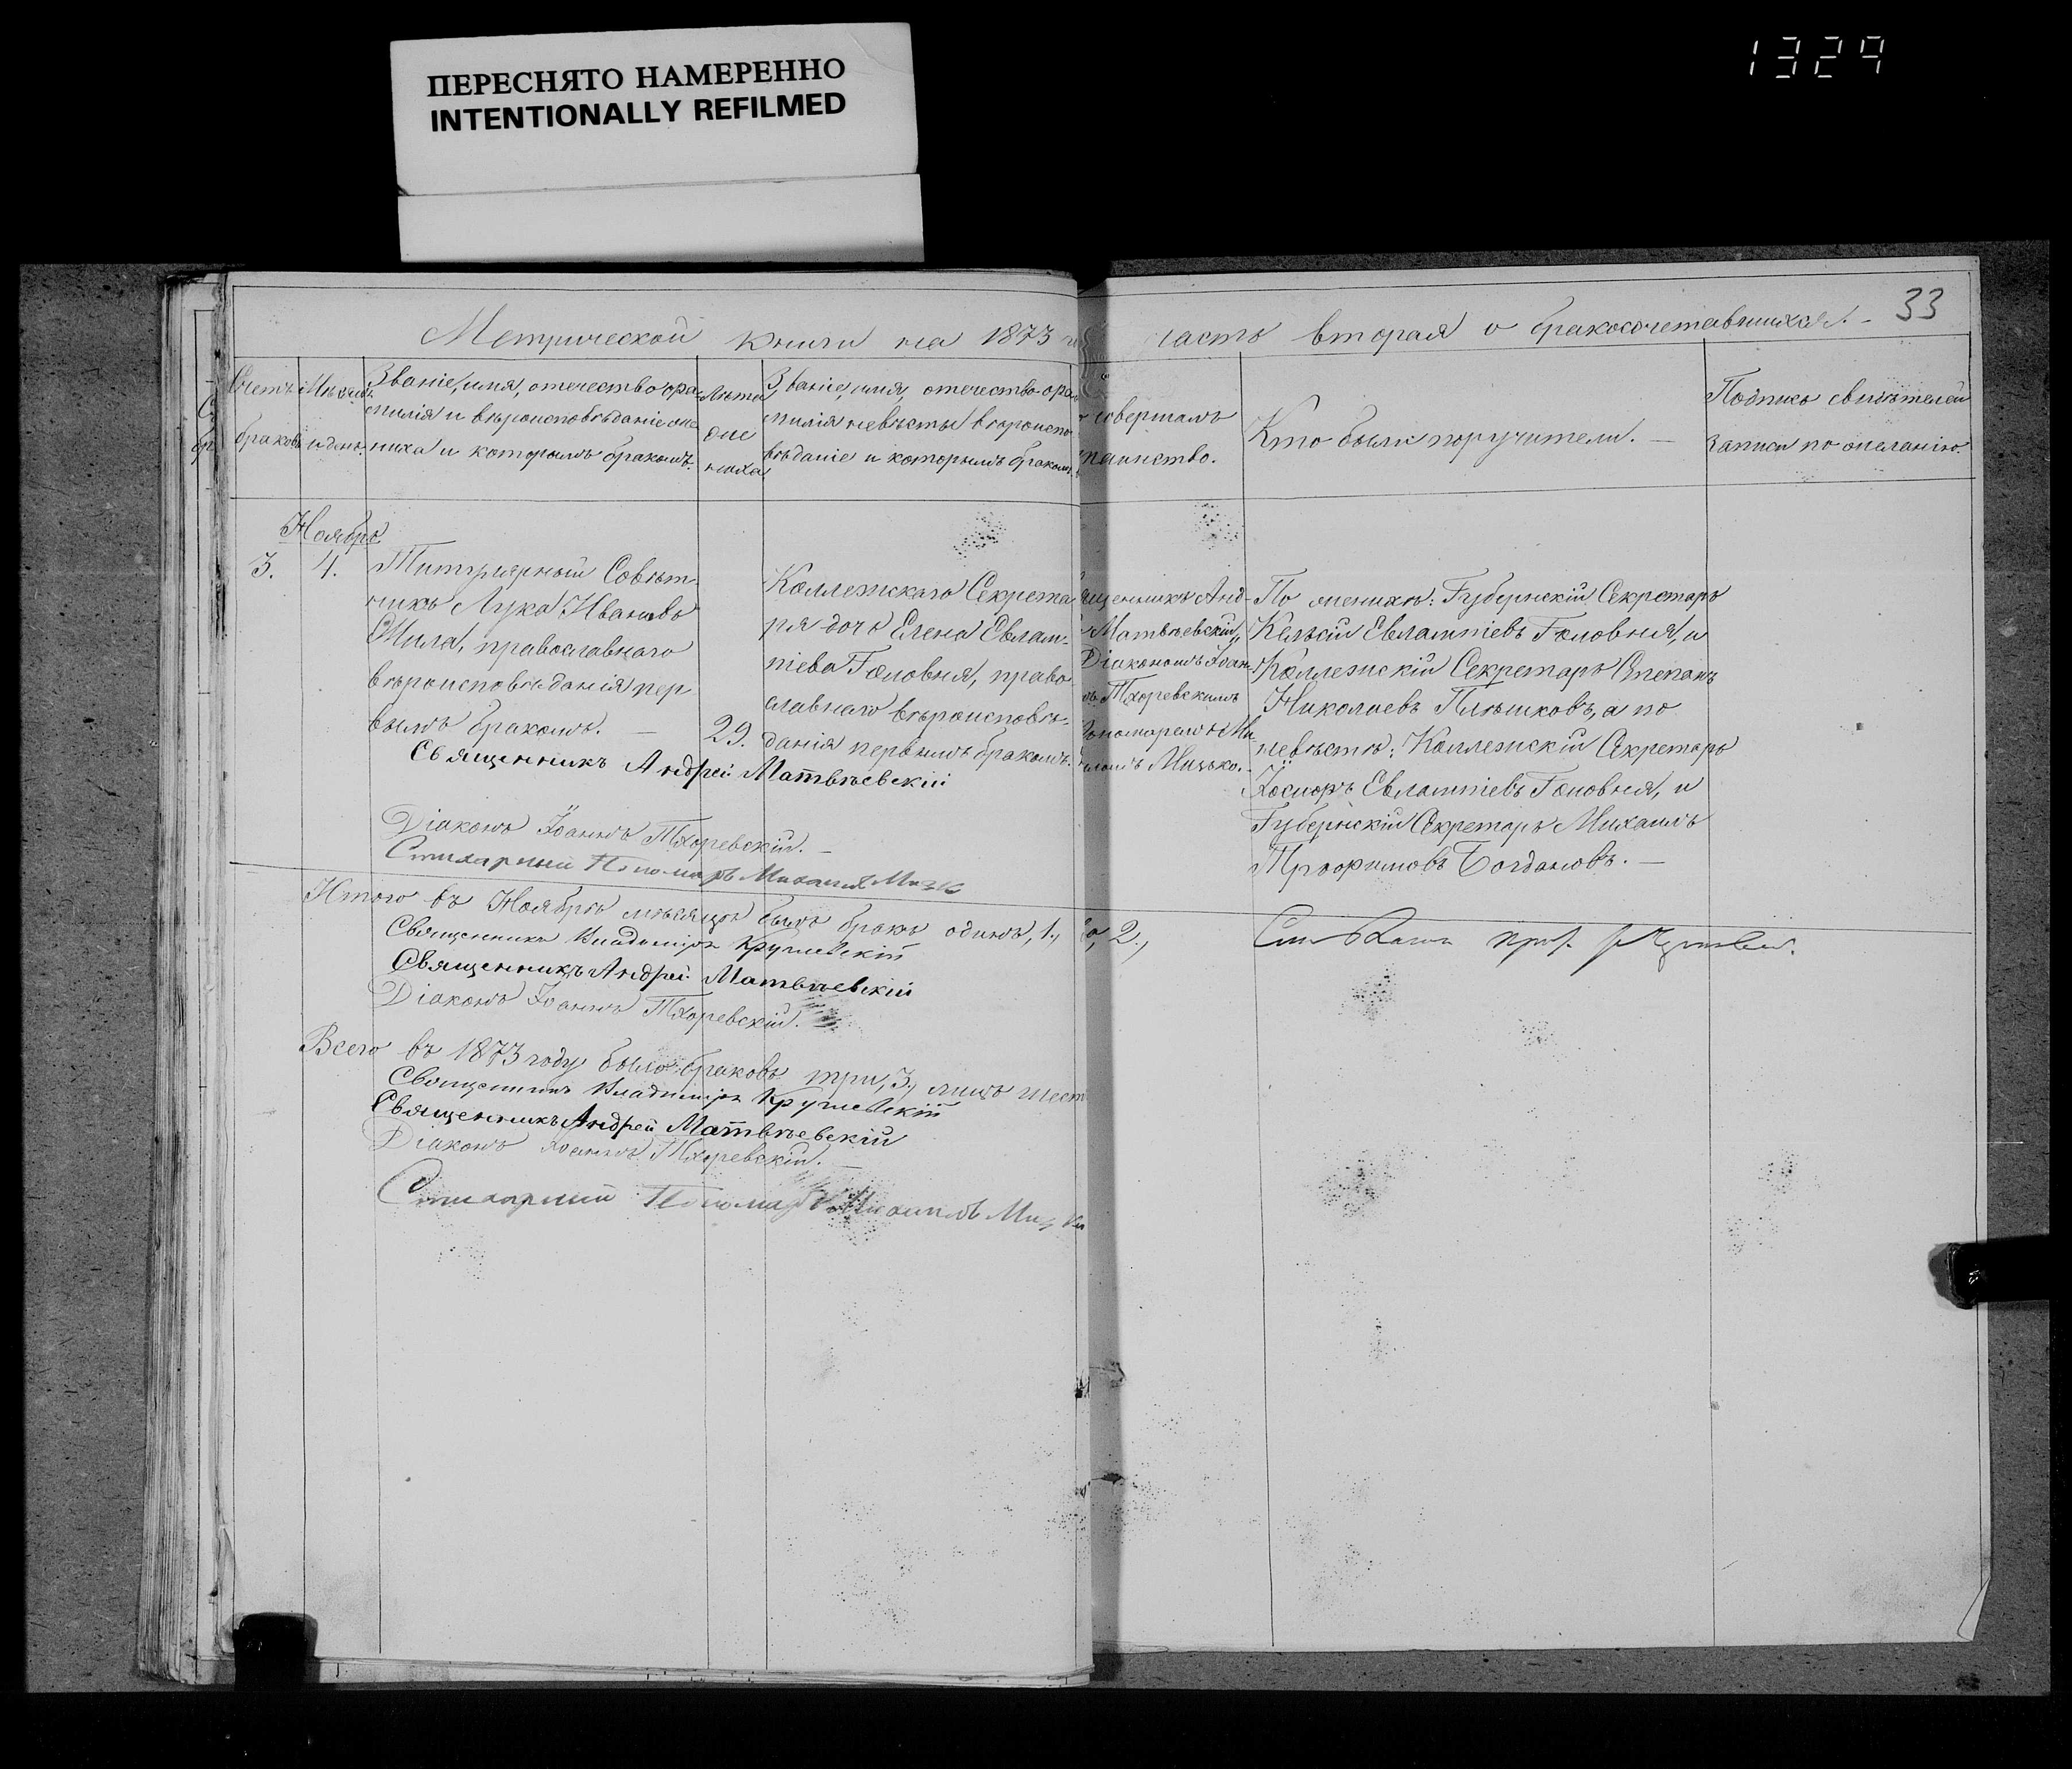 1329
ПЕРЕСНЯТО НАМЕРЕННО
INTENTIONALLY REFILMED
33
Метрической книги на 1873 часть вторая о бракосочетавшихся.
Счетъ браковъ
Мѣсяцъ и день.
Званіе, имя, отечество фа-
милія и вѣроисповѣданіе же-
ниха и которымъ бракомъ.
Лѣта
жениха
Званіе, имя, отечество фа-
милія невѣсты вѣроиспо-
вѣданіе и которымъ бракомъ
совершалъ
таинство.
Кто были поручители. —
Подпись свидѣтелей
записи по желанію.
Ноябрь
3. 4.
Титулярный Совѣт-
никъ Лука Ивановъ
Жила, православнаго
вѣроисповѣданія пер
вымъ бракомъ. —
29.
Коллежскаго Секрета
ря дочь Елена Евлам-
піева Головня, право
славнаго вѣроисповѣ-
данія первымъ бракомъ.
щенникъ Анд-
Матвѣевскій,
Діакономъ Іоан-
Тхоревскимъ
ономаремъ Ми-
Мицько.
По женихѣ: Губернскій Секретарь
Евлампіевъ Головня, и
Коллежскій Секретарь Степанъ
Николаевъ Плѣшковъ, а по
невѣстѣ: Коллежскій Секретарь
Евлампіевъ Головня, и
Губернскій Секретарь Михаилъ
Трофимовъ Богдановъ. —
Священникъ Андрей Матвѣевскій
Діаконъ Іоаннъ Тхоревскій. —
Стихарный Пономарь Михаилъ
Итого въ Ноябрѣ мѣсяцѣ былъ бракъ одинъ, 1., 2.,
Священникъ Владиміръ
Священникъ Андрей Матвѣевскій
Діаконъ Іоаннъ Тхоревскій.
Всего въ 1873 году было браковъ три, 3, лицъ шест
Священникъ Владиміръ
Священникъ Андрей Матвѣевскій
Діаконъ Іоаннъ Тхоревскій. —
Стихарный Пономарь Михаилъ